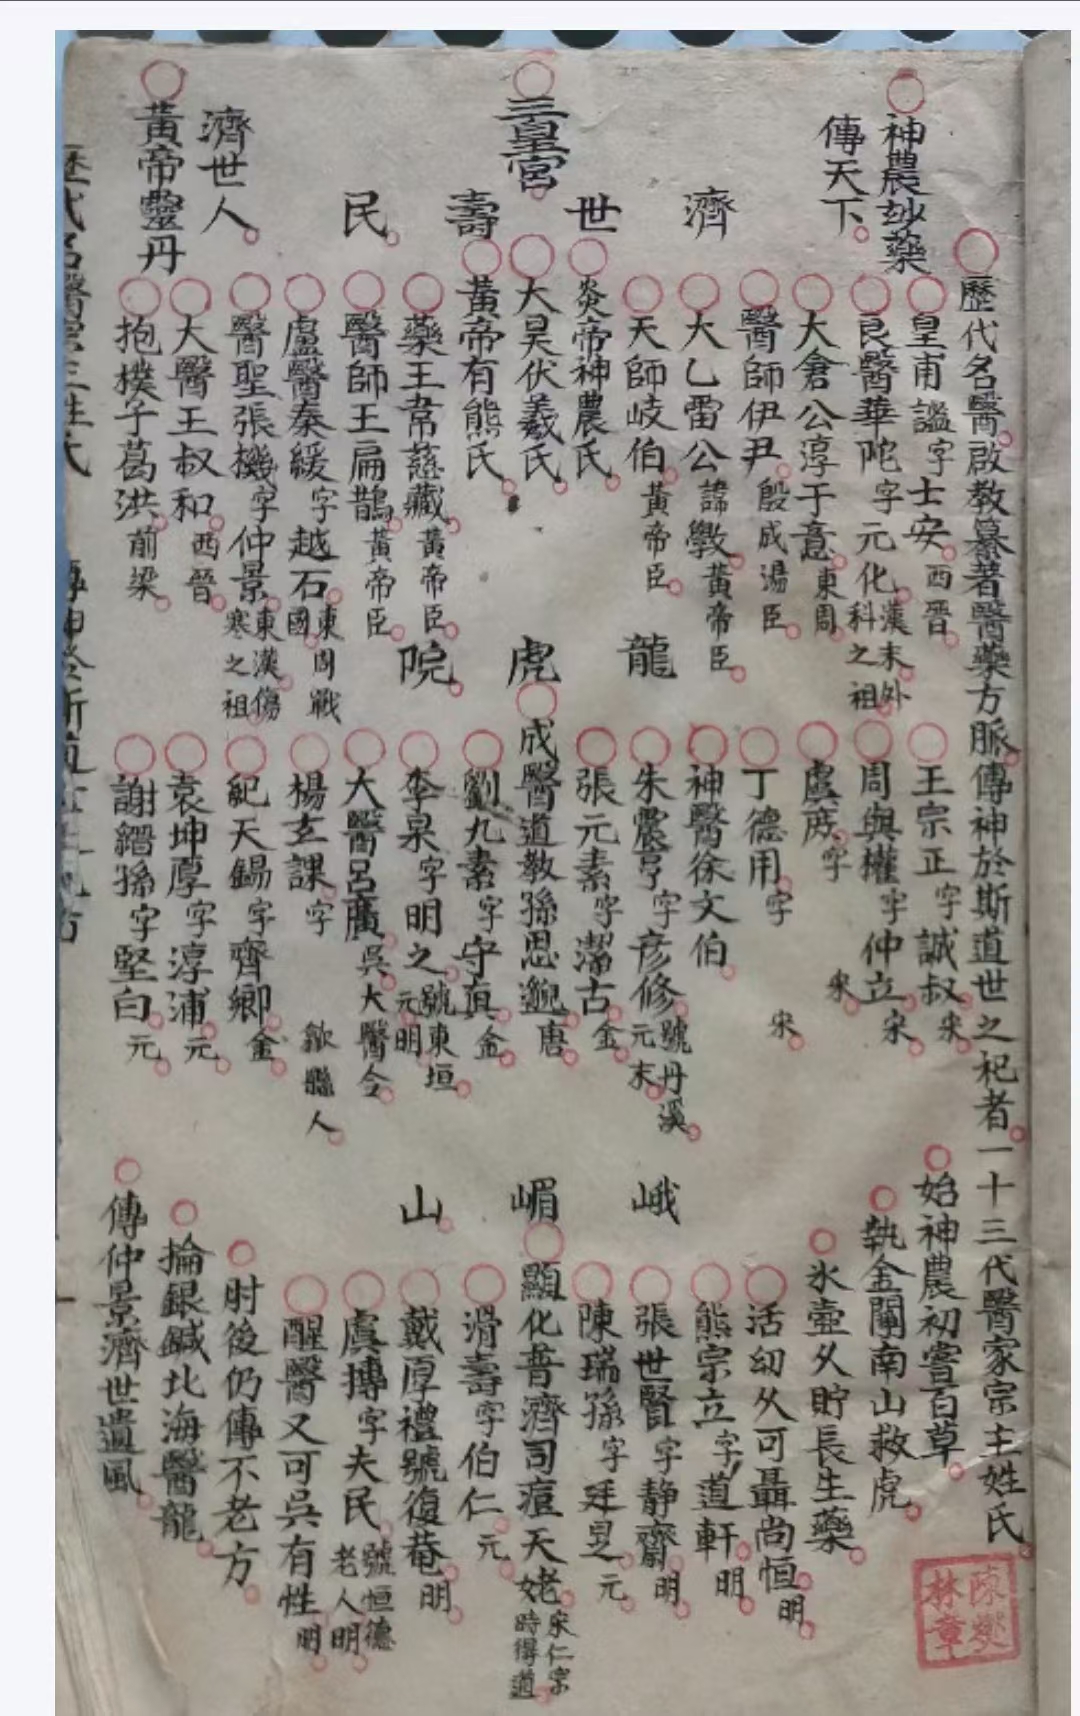 歷代名醫啟教纂著醫藥方脈傳神於斯道世之杞者一十三代醫家宗主姓氏
神農妙藥
傳天下
三皇宮
濟世壽民
濟世人
黃帝靈丹
皇甫謐字士安西晉
良醫華陀字元化漢末外科之祖
大倉公淳于意東周
醫師伊尹殷成湯臣
大乙雷公諱斆黃帝臣
天師岐伯黃帝臣
炎帝神農氏
大昊伏羲氏
黃帝有熊氏
藥王韋慈藏黃帝臣
醫師王扁鵲黃帝臣
盧醫秦緩字越石東周戰國
醫聖張機字仲景東漢傷寒之祖
大醫王叔和西晉
抱樸子葛洪前梁
龍虎院
王宗正字誠叔宋
周與權字仲立宋
虞庶字宋
丁德用字宋
神醫徐文伯
朱震亨字彥修號丹溪元末
張元素字潔古金
成醫道教孫思邈唐
劉九素字守真金
李杲字明之號東垣元明
大醫呂廣吳大醫令
楊玄課字歙縣人
紀天錫字齊卿金
袁坤厚字淳浦元
謝縉孫字堅白元
峨嵋山
始神農初嘗百草
執金闡南山救虎
氷壺久貯長生藥
活幼久可聶尚恒明
熊宗立字道軒明
張世賢字静齋明
陳瑞孫字廷㫤元
顯化普濟司痘天姥宋仁宗時得道
滑壽字伯仁元
戴厚禮號復菴明
虞摶字夫民號恒德老人明
醒醫又可吳有性明
肘後仍傳不老方
掄銀鍼北海醫龍
傳仲景濟世遺風
陳燮林章